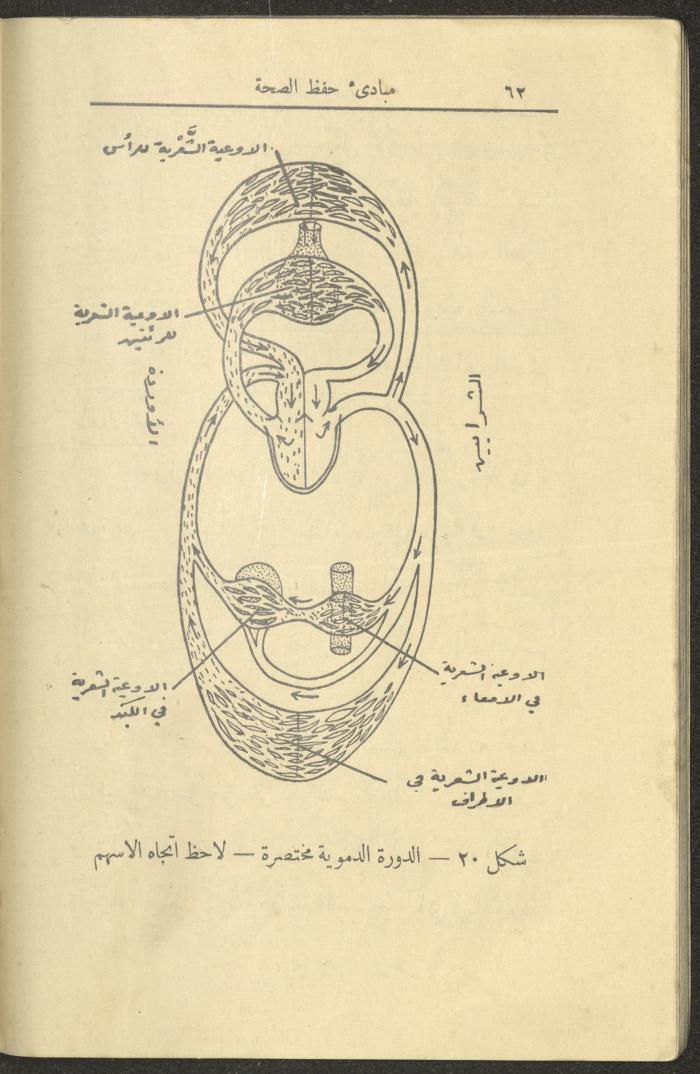 ٦٢
مبادىء حفظ الصحة
الاوعية الشَّعْرِيَّة للرأس
الاوعية الشعرية
للرئتين
الأوردة
الشرايين
الاوعية الشعرية
في الامعاء
الاوعية الشعرية
في الكبد
الاوعية الشعرية في
الاطراف
شكل ٢٠ — الدورة الدموية مختصرة — لاحظ اتجاه الاسهم